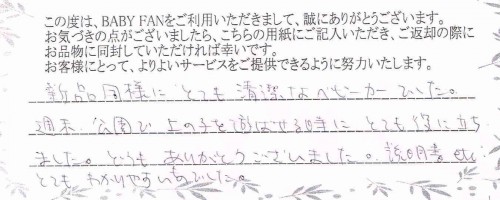 この度は、BABY FANをご利用いただきまして、誠にありがとうございます。
お気づきの点がございましたら、こちらの用紙にご記入いただき、ご返却の際に
お品物に同封していただければ幸いです。
お客様にとって、よりよいサービスをご提供できるように努力いたします。
新品同様にとても清潔なベビーカーでした。
週末、公園で上の子を遊ばせる時にとても役に立ち
ました。どうもありがとうございました。説明書etc
とてもわかりやすいものでした。